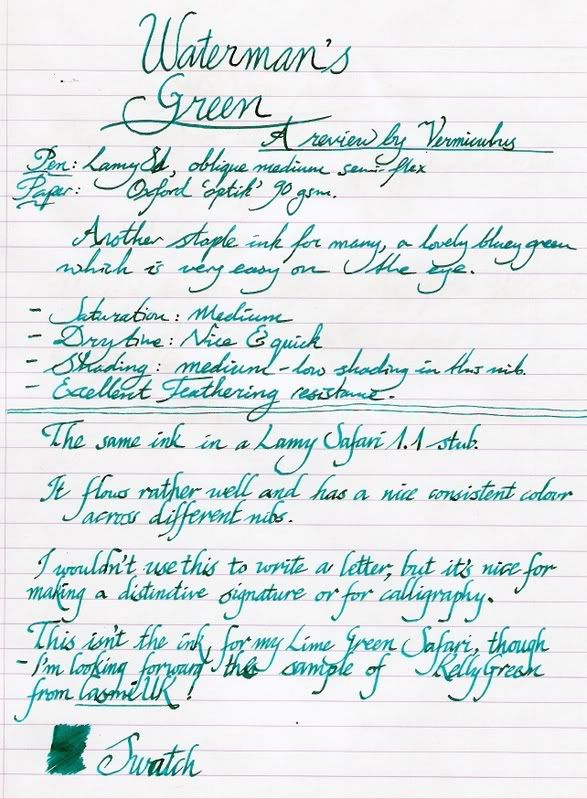 Waterman's
Green
A review by Vermiculus
Pen: Lamy oblique medium semi-flex
Paper: Oxford 'optik' 90 gsm.
Another staple ink for many, a lovely bluey green
which is very easy on the eye.
- Saturation: Medium
- Dry time: Nice & quick
- Shading: medium-low shading in this nib.
- Excellent Feathering resistance.
The same ink in a Lamy Safari 1.1 stub.
It flows rather well and has a nice consistent colour
across different nibs.
I wouldn't use this to write a letter, but it's nice for
making a distinctive signature or for calligraphy.
This isn't the ink for my Lime Green Safari, though
- I'm looking forward sample of Kelly Green
from !
Swatch